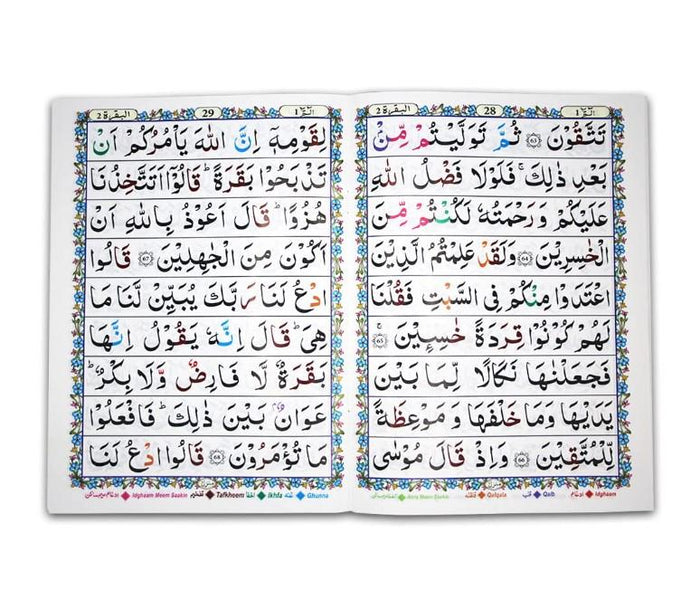 البقرة ٢
28
الٓمّٓ ١
تَتَّقُوْنَ ۝٦٣ ثُمَّ تَوَلَّيْتُمْ مِّنْۢ
بَعْدِ ذٰلِكَ ۚ فَلَوْلَا فَضْلُ اللّٰهِ
عَلَيْكُمْ وَرَحْمَتُهٗ لَكُنْتُمْ مِّنَ
الْخٰسِرِيْنَ ۝٦٤ وَلَقَدْ عَلِمْتُمُ الَّذِيْنَ
اعْتَدَوْا مِنْكُمْ فِى السَّبْتِ فَقُلْنَا
لَهُمْ كُوْنُوْا قِرَدَةً خٰسِـِٕيْنَ ۝٦٥ ۚ
فَجَعَلْنٰهَا نَكَالًا لِّمَا بَيْنَ
يَدَيْهَا وَمَا خَلْفَهَا وَ مَوْعِظَةً
لِّلْمُتَّقِيْنَ ۝٦٦ وَاِذْ قَالَ مُوْسٰى
Idghaam Meem Saakin قلقلہ Qalqala قلب Qalb ادغام Idghaam
البقرة ٢
29
الٓمّٓ ١
لِقَوْمِهٖٓ اِنَّ اللّٰهَ يَاْمُرُكُمْ اَنْ
تَذْبَحُوْا بَقَرَةً ؕ قَالُوْٓا اَتَتَّخِذُنَا
هُزُوًا ؕ قَالَ اَعُوْذُ بِاللّٰهِ اَنْ
اَكُوْنَ مِنَ الْجٰهِلِيْنَ ۝٦٧ قَالُوا
ادْعُ لَنَا رَبَّكَ يُبَيِّنْ لَّنَا مَا
هِىَ ؕ قَالَ اِنَّهٗ يَقُوْلُ اِنَّهَا
بَقَرَةٌ لَّا فَارِضٌ وَّلَا بِكْرٌ ؕ
عَوَانٌۢ بَيْنَ ذٰلِكَ ؕ فَافْعَلُوْا
مَا تُؤْمَرُوْنَ ۝٦٨ قَالُوا ادْعُ لَنَا
Idghaam Meem Saakin تفخیم Tafkheem اخفا Ikhfa غنہ Ghunna